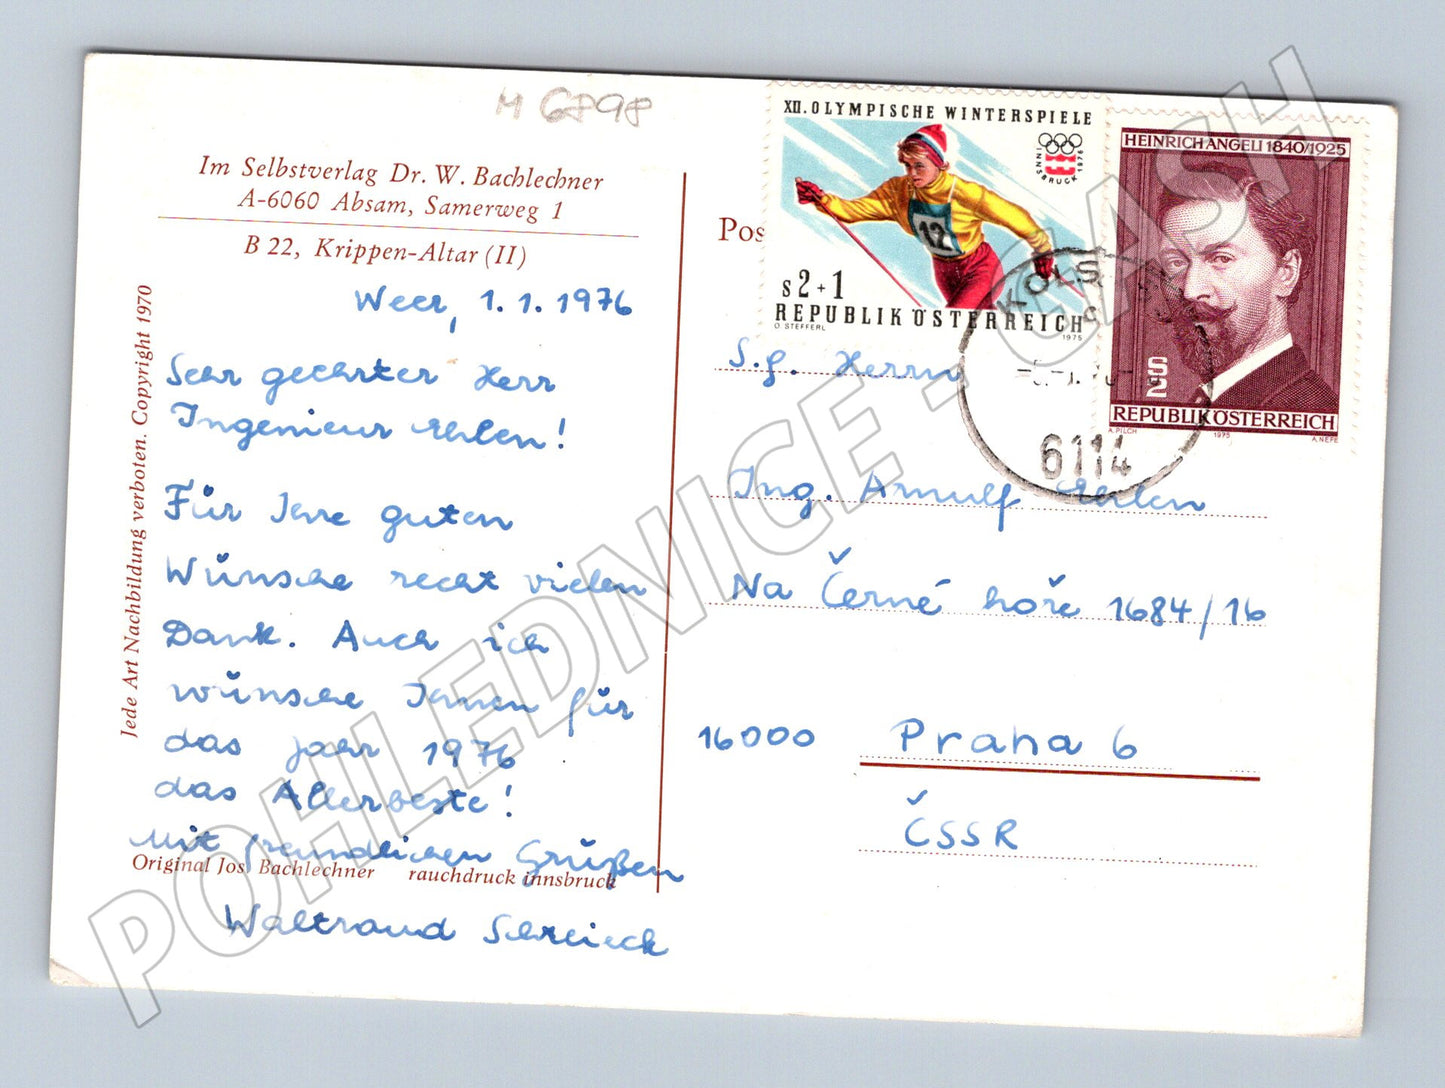 M 6898
Im Selbstverlag Dr. W. Bachlechner
A-6060 Absam, Samerweg 1
B 22, Krippen-Altar (II)
Weer, 1.1.1976
Sehr geehrter Herr
Ingenieur Ehlen!
Für Ihre guten
Wünsche recht vielen
Dank. Auch ich
wünsche Ihnen für
das Jahr 1976
das Allerbeste!
Mit freundlichen Grüßen
Waltraud Schreieck
Original Jos. Bachlechner rauchdruck innsbruck
Jede Art Nachbildung verboten. Copyright 1970
Pos
XII. OLYMPISCHE WINTERSPIELE
INNSBRUCK 1976
12
S 2+1
REPUBLIK ÖSTERREICH
O. STEFFERL 1975
HEINRICH ANGELI 1840/1925
S 2
REPUBLIK ÖSTERREICH
A. PILCH 1975 A. NEFE
KOLS
6114
S.g. Herrn
Ing. Arnulf Ehlen
Na Černé hoře 1684/16
16000 Praha 6
ČSSR
POHLEDNICE - CASH